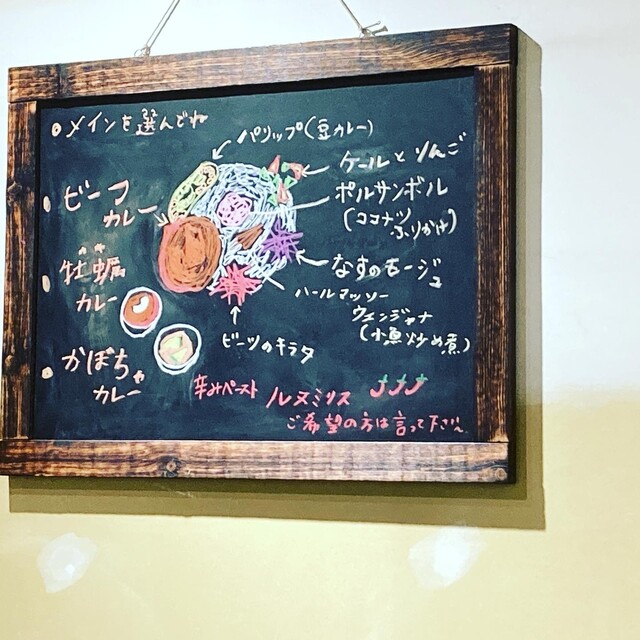 メインを選んでね
ビーフ
カレー
牡蠣
カレー
かぼちゃ
カレー
パリップ(豆カレー)
ケールとりんご
ポルサンボル
(ココナツ
ふりかけ)
なすのモージュ
ハールマッソー
ウェンジャナ
(小魚炒め煮)
ビーツのキラタ
辛みペースト ルヌミリス
ご希望の方は言って下さい